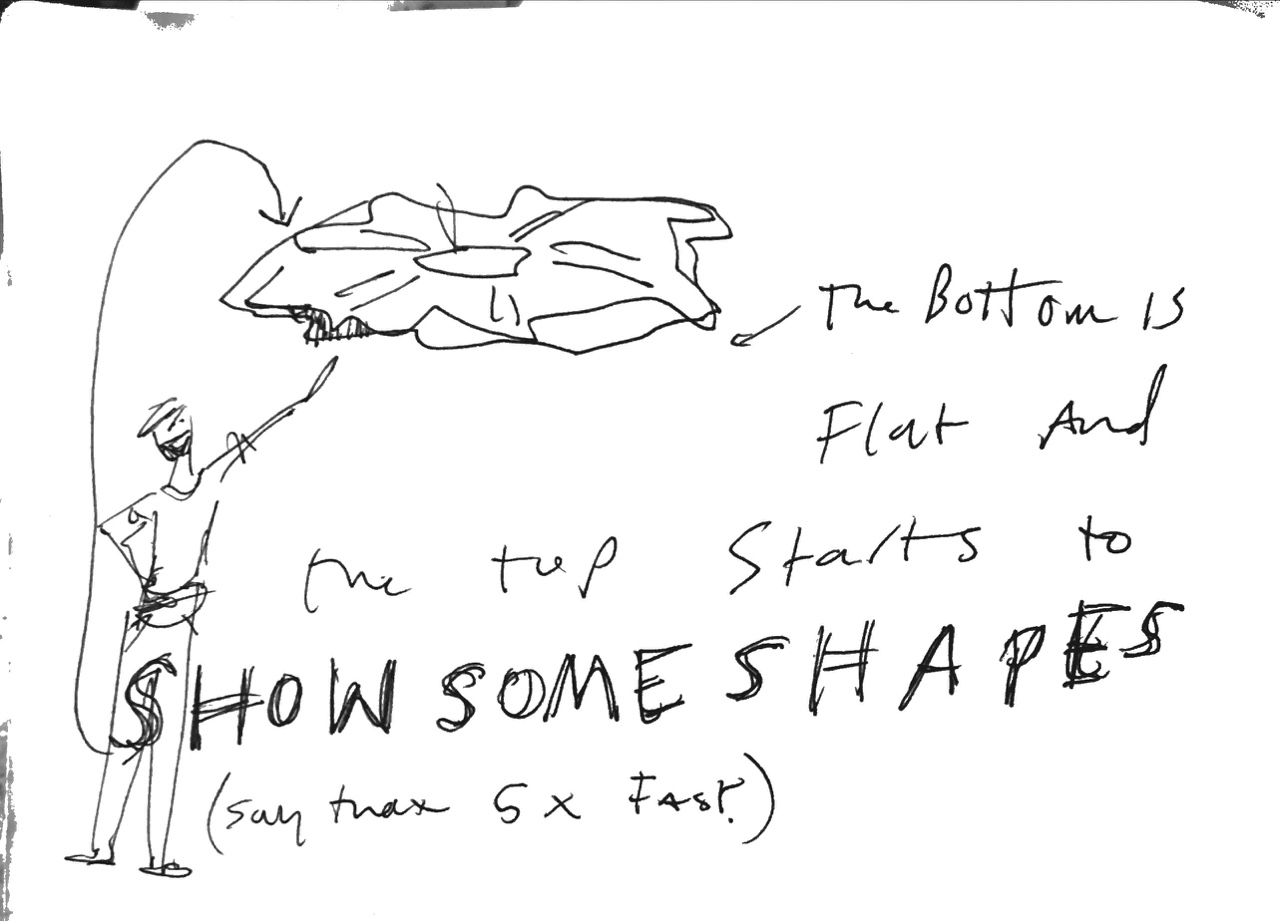 the Bottom is
Flat And
the top starts to
SHOW SOME SHAPES
(say that 5x FAST.)